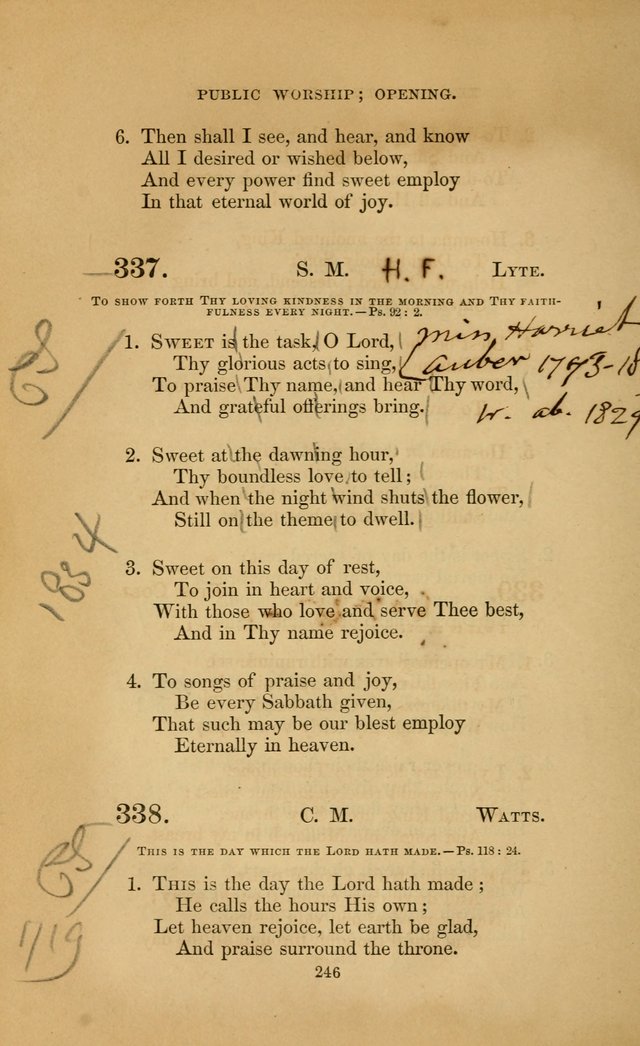 PUBLIC WORSHIP; OPENING.
6. Then shall I see, and hear, and know
All I desired or wished below,
And every power find sweet employ
In that eternal world of joy.
337. S. M. H. F. LYTE.
TO SHOW FORTH THY LOVING KINDNESS IN THE MORNING AND THY FAITH-
FULNESS EVERY NIGHT.—Ps. 92: 2.
Miss Harriet
Auber 1793-18
W. ab. 1829
1. SWEET is the task, O Lord,
Thy glorious acts to sing,
To praise Thy name, and hear Thy word,
And grateful offerings bring.
2. Sweet at the dawning hour,
Thy boundless love to tell;
And when the night wind shuts the flower,
Still on the theme to dwell.
1834
3. Sweet on this day of rest,
To join in heart and voice,
With those who love and serve Thee best,
And in Thy name rejoice.
4. To songs of praise and joy,
Be every Sabbath given,
That such may be our blest employ
Eternally in heaven.
338. C. M. WATTS.
THIS IS THE DAY WHICH THE LORD HATH MADE.—Ps. 118: 24.
1. THIS is the day the Lord hath made;
He calls the hours His own;
Let heaven rejoice, let earth be glad,
And praise surround the throne.
1719
246